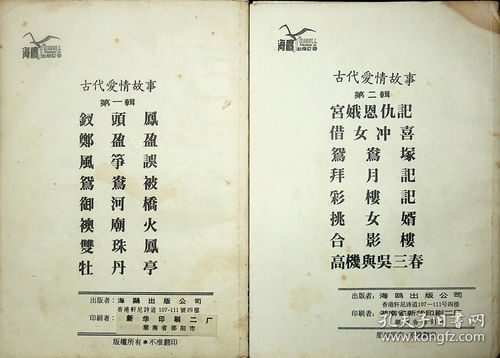 海鷗
出版公司
古代愛情故事
第一輯
釵頭鳳
鄭盈盈
風箏誤
鴛鴦被
御河橋
襖廟火
雙珠鳳
牡丹亭
出版者：海鷗出版公司
香港軒尼詩道107-111號四樓
印刷者：新华印刷二厂
湖南省邵阳市
版權所有＊不准翻印
海鷗
出版公司
古代愛情故事
第二輯
宮娥恩仇記
借女冲喜
鴛鴦塚
拜月記
彩樓記
挑女婿
合影樓
高機與吳三春
出版者：海鷗出版公司
香港軒尼詩道107—111号四樓
印刷者：湖南省新华印刷二厂
孔夫子旧书网